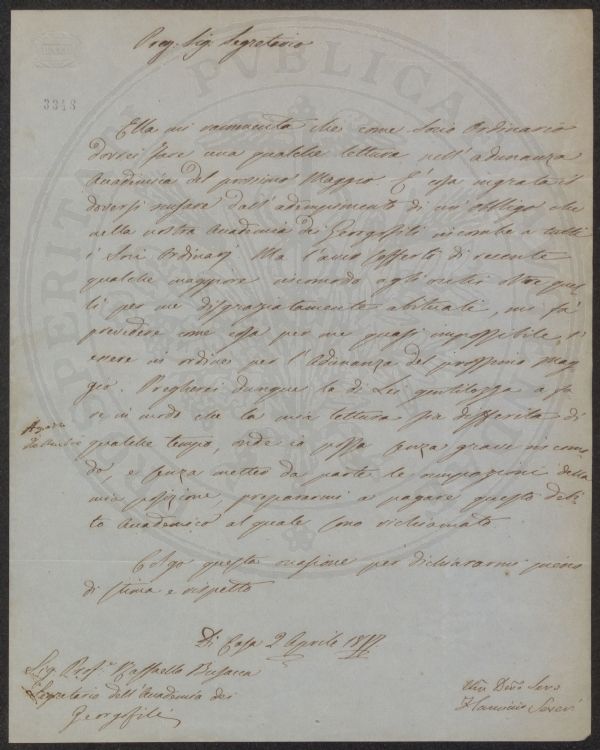 Preg. Sig. Segretario
3348
Ella mi rammenta che come Socio Ordinario
dovrei fare una qualche lettura nell'adunanza
Accademica del prossimo Maggio. È cosa ingrata il
doversi scusare dall'adempimento di un obbligo che
nella nostra Accademia dei Georgofili incombe a tutti
i Soci Ordinarj. Ma l'aver sofferto di recente
qualche maggiore incomodo agli occhi oltre quel
li per me disgraziatamente abituali, mi fà
prevedere come cosa per me quasi impossibile, l'
essere in ordine per l'Adunanza del prossimo Mag
gio. Pregherei dunque la di Lei gentilezza a fa
re in modo che la mia lettura sia differita di
qualche tempo, onde io possa senza grave incomo
do, e senza mettere da parte le occupazioni della
mia posizione, prepararmi a pagare questo debi
to Accademico al quale sono richiamato.
Colgo questa occasione per dichiararmi pieno
di stima e rispetto
Di Casa 2 Aprile
Sig. Prof. Raffaello Busacca
Segretario dell'Accademia dei
Georgofili
Dev. Servo